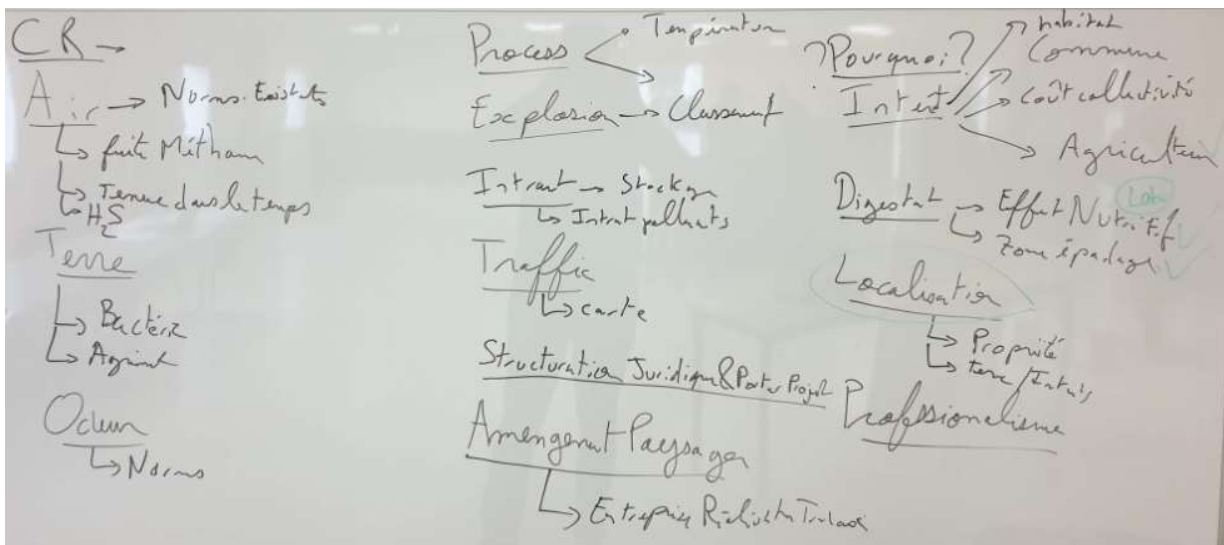 CR →
Air → Norms Existants
↳ fuite Méthane
↳ Tenue dans le temps
↳ H2S
Terre
↳ Bactérie
↳ Agrément
Odeur
↳ Norms
Process
Température
Explosion → Classement
Intrant → Stockage
↳ Intrat polluants
Traffic
↳ carte
Structuration Juridique & Porteur Projet
Aménagement Paysager
↳ Entreprise Travaux
?Pourquoi?
Interet
→ habitat
→ Commune
→ Coût collectivité
→ Agriculteur
Digestat → Effet Nutritif
Labo
↳ Zone épadage
Localisation
↳ Propriété
↳ terre
Professionalisme